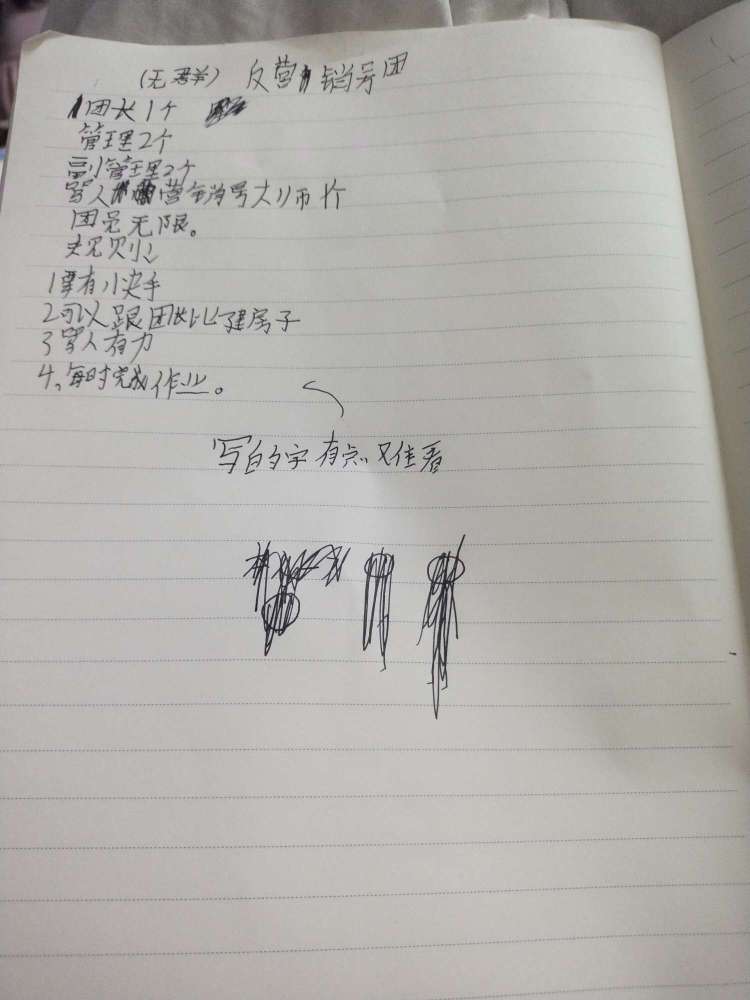 (无群) 反营销号团
团长1个
管理2个
副管理2个
骂人营销号大师1个
团员无限。
规则
1要有小决手
2可以跟团长比建房子
3骂人有力
4、每时完成作业。
写的字有点又佳看